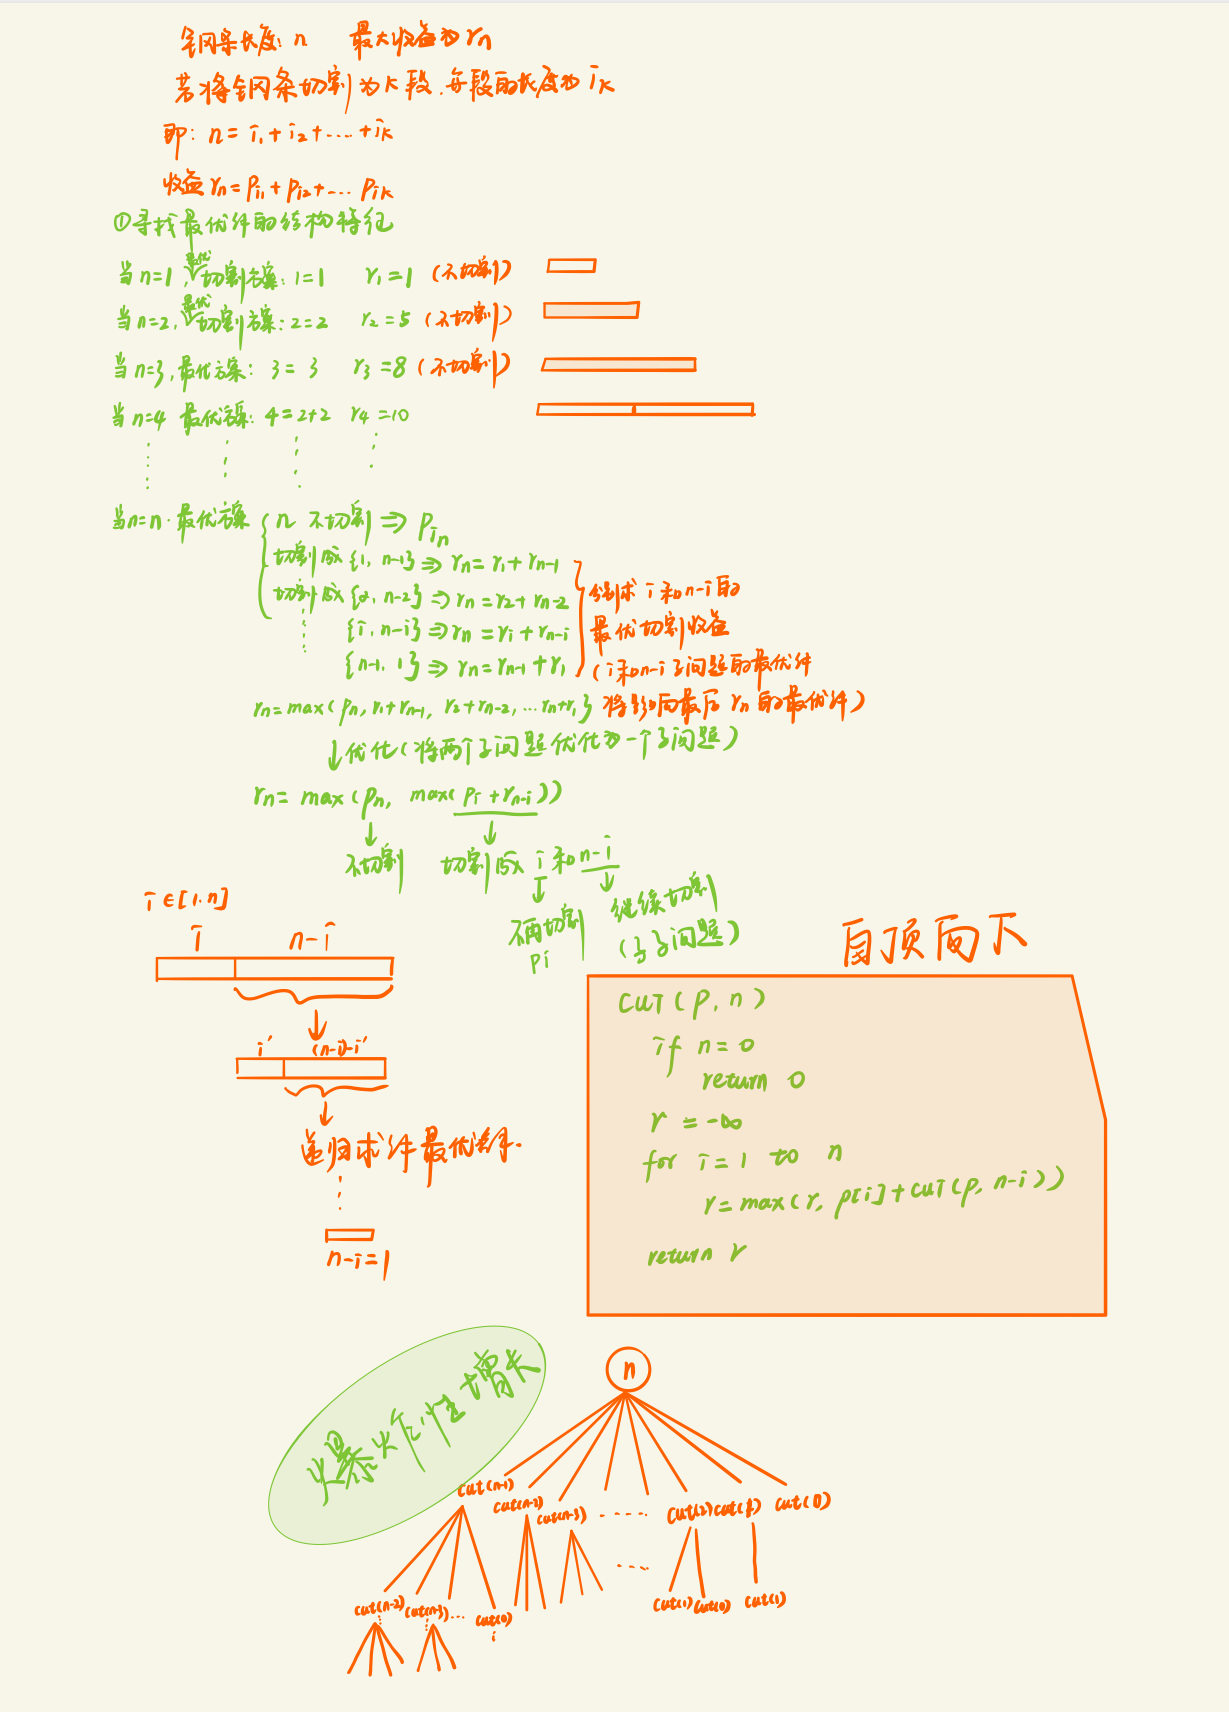 钢条长度: n 最大收益为 rn
若将钢条切割为 k 段, 每段的长度为 ik
即: n = i1 + i2 + .... + ik
收益 rn = Pi1 + Pi2 + ... Pik
①寻找最优解的结构特征
当 n=1, 最优切割方案: 1=1 r1 = 1 (不切割)
当 n=2, 最优切割方案: 2=2 r2 = 5 (不切割)
当 n=3, 最优方案: 3 = 3 r3 = 8 (不切割)
当 n=4 最优方案: 4=2+2 r4 = 10
当n=n. 最优方案 { n 不切割 ⇒ Pin
切割成 {1, n-1} ⇒ rn = r1 + rn-1
切割成 {2, n-2} ⇒ rn = r2 + rn-2
{i, n-i} ⇒ rn = ri + rn-i
{n-1, 1} ⇒ rn = rn-1 + r1
分别求 i 和 n-i 的
最优切割收益
(i 和 n-i 子问题的最优解
将影响最后 rn 的最优解)
rn = max(Pn, r1+rn-1, r2+rn-2, ... rn+r1}
↓优化(将两个子问题优化为一个子问题)
rn = max(Pn, max(Pi + rn-i))
不切割 切割成 i 和 n-i
不再切割
Pi
继续切割
(子子问题)
i ∈ [1. n]
i n-i
i' (n-i)-i'
递归求解最优解.
n-i=1
自顶向下
CUT(P, n)
if n = 0
return 0
r = -∞
for i = 1 to n
r = max(r, P[i] + CUT(P, n-i))
return r
爆炸性增长
n
cut(n-1) cut(n-2) cut(n-3) ..... cut(2) cut(1) cut(0)
cut(n-2) cut(n-3) ... cut(0) cut(1) cut(0) cut(1)